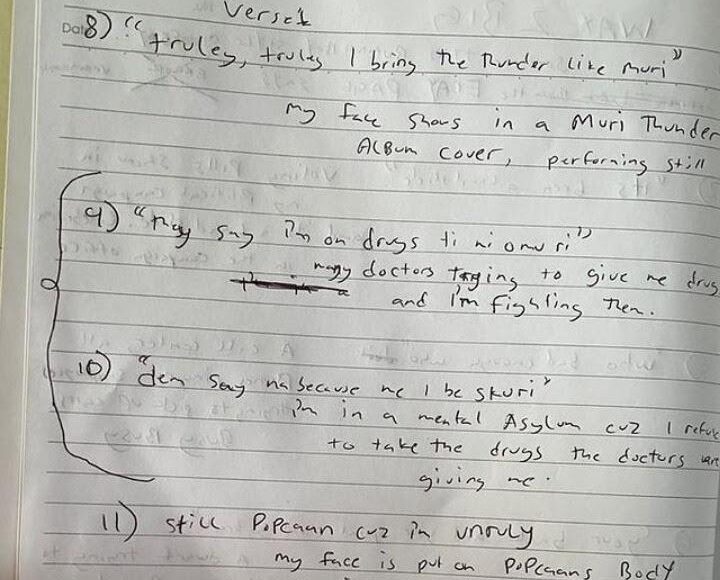 Verse 1
Dat 8) "truley, truley I bring the thunder like muri"
my face shows in a Muri Thunder
Album cover, performing still
9) "They say I'm on drugs ti ni omu ri"
many doctors trying to give me drug
and I'm fighting them.
10) "dem say na because me I be skuri"
I'm in a mental Asylum cuz I refus
to take the drugs the doctors are
giving me.
11) still Popcaan cuz I'm unruly
my face is put on Popcaans Body